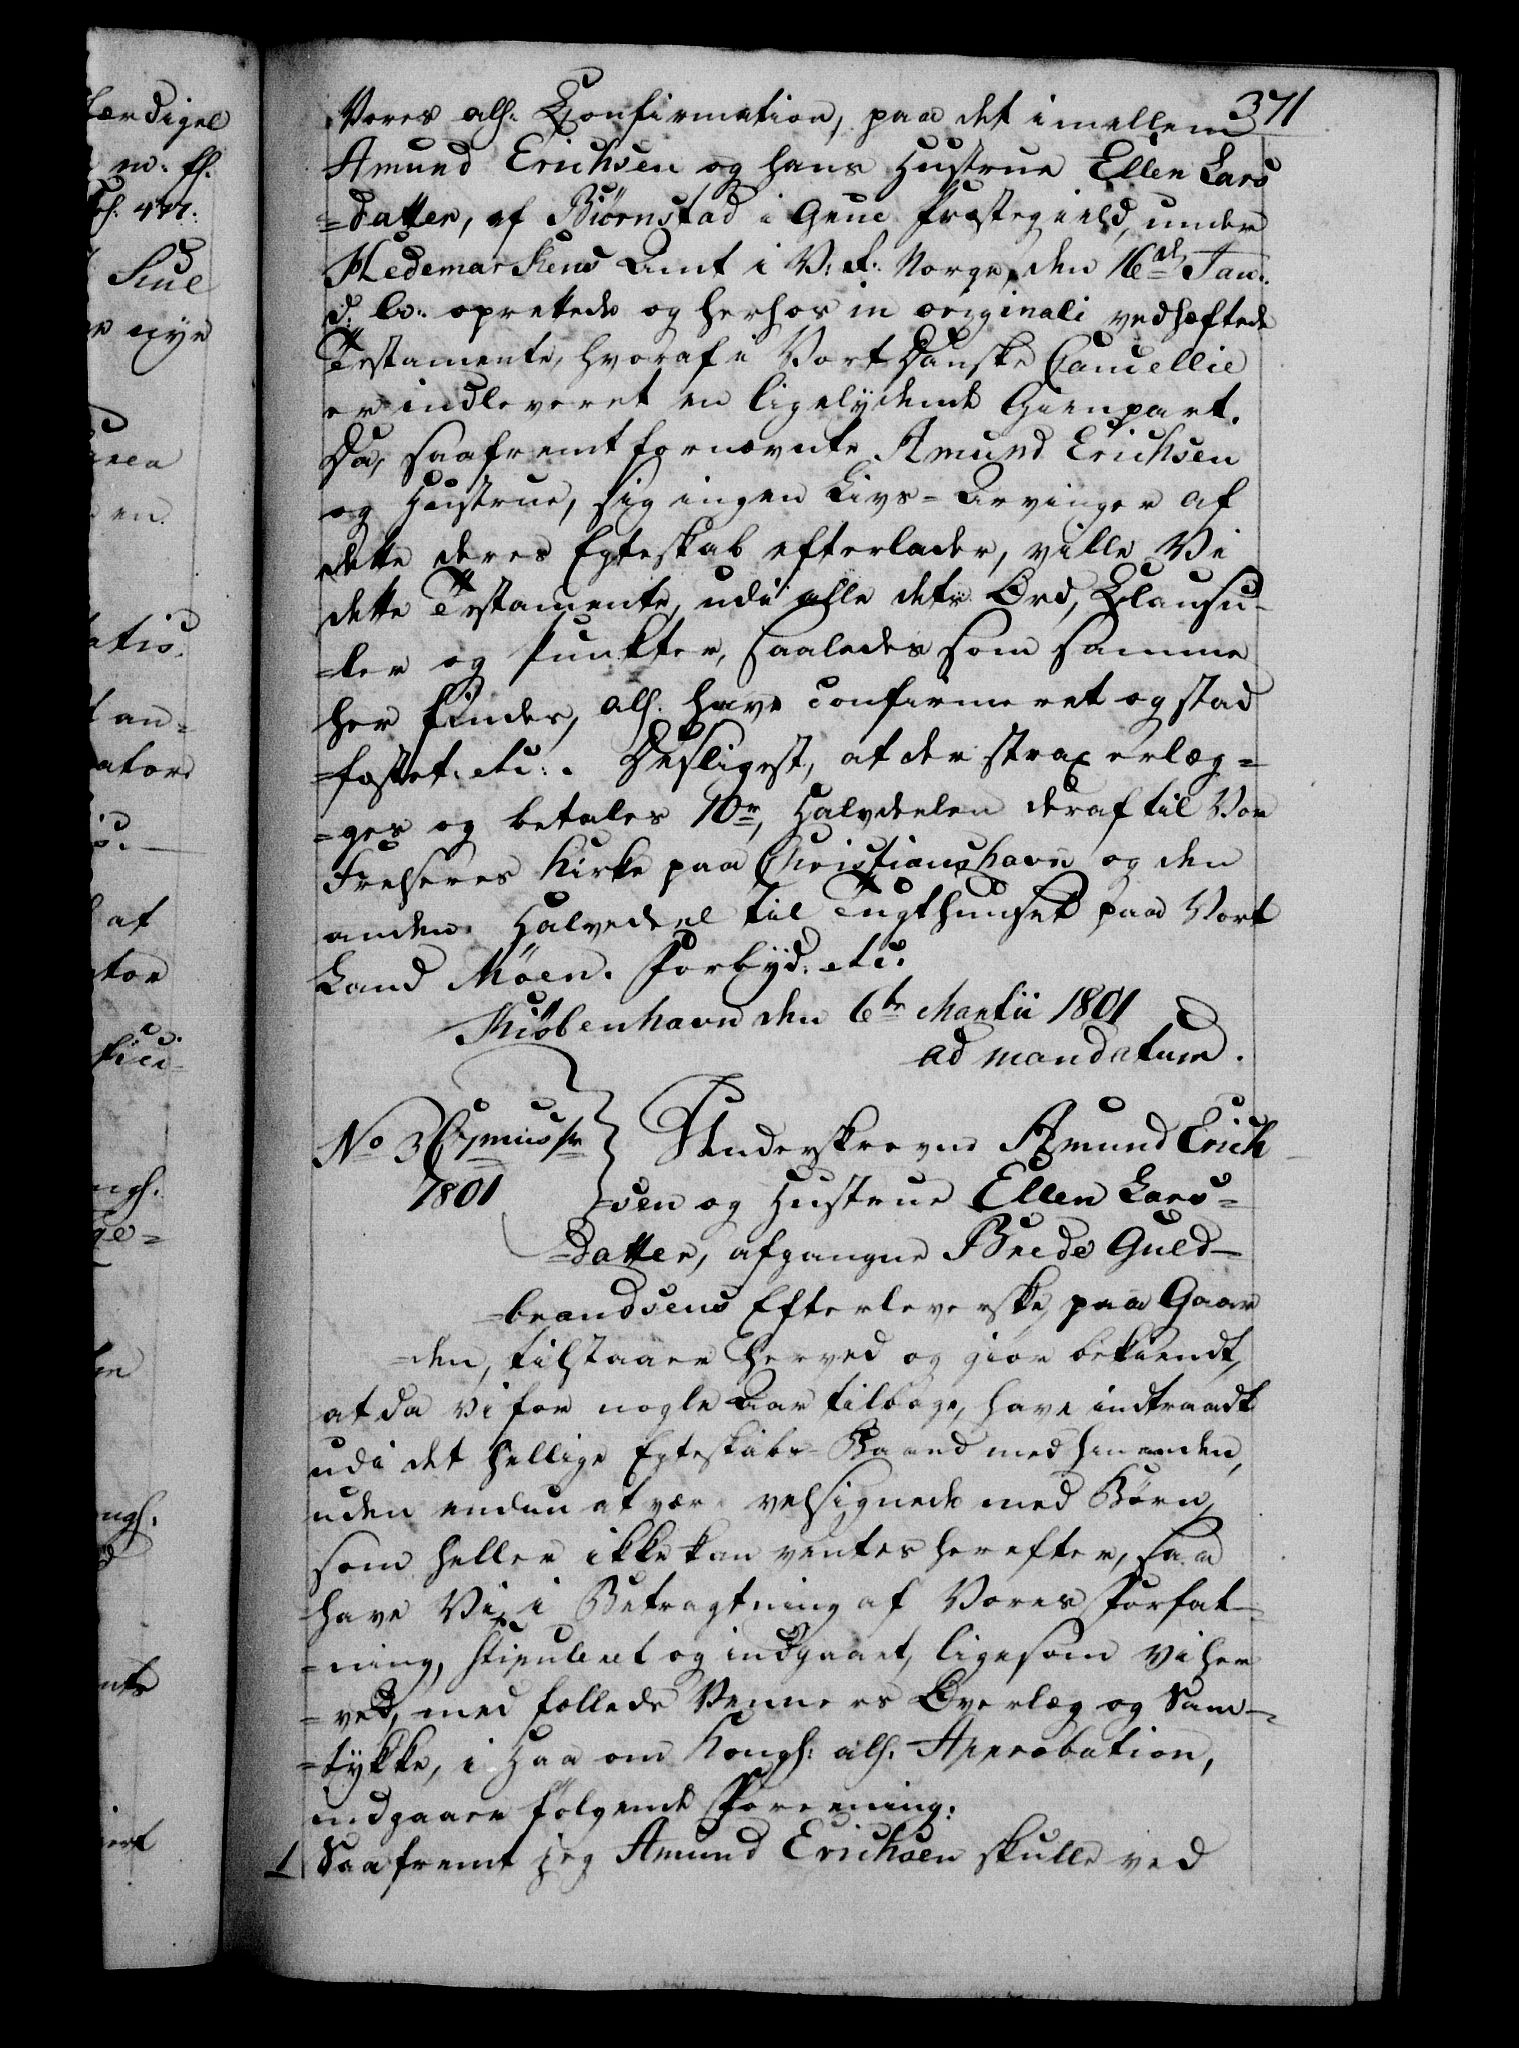 371
Vores alh: Confirmation, paa det imellem
Amund Erichsen og hans Hustrue Ellen Lars
=datter, af Biørnstad i Grue Præstegield, under
Hedemarkens Amt i V: R: Norge, den 16de Jan:
d: A: oprettede og herhos in originali vedhæftede
Testamente, hvoraf i Vort Danske Cancellie
er indleveret en ligelydende Gienpart.
Da, saafremt fornævnte Amund Erichsen
og Hustrue, sig ingen Livs-Arvinger af
dette deres Egteskab efterlader, ville Vi
dette Testamente, udi alle dets Ord, Clausu-
=ler og Punkter, saaledes som samme
her findes, alh: have confirmeret og stad
=fæstet: etc: . Desligest, at der strax erlæg=
=ges og betales 10r, Halvdelen deraf til Vor
Frelseres Kirke paa Christianshavn og den
anden Halvedeel til Tugthuuset paa Vort
Land Møen. Forbyd: etc:
Kiøbenhavn den 6te Martii 1801
ad mandatum.
No 3
1801
Underskrevne Amund Erich
=sen og Hustrue Ellen Lars=
=datter, afgangne Brede Guld-
=brandsens Efterleverske, paa Gaar
=den, tilstaaer herved og giør bekiendt,
at da vi for nogle Aar tilbage, have indtraadt
udi det hellige Egteskabs-Baand med hinanden,
uden endnu at være velsignede med Børn,
som heller ikke kan ventes herefter, saa
have Vi, i Betragtning af Vores Forfat-
=ning, stipuleret og indgaaet, ligesom vi her
=ved, med fælleds Venners Overlæg og Sam-
=tykke, i Haab om Kongl: alh: Approbation,
indgaaer følgende Forening:
1 Saafremt jeg Amund Erichsen skulle ved